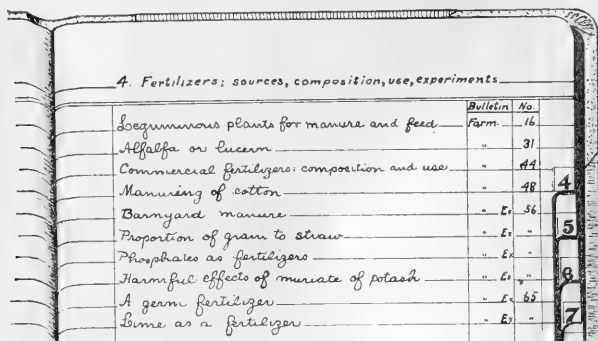 4. Fertilizers; sources, composition, use, experiments
Bulletin No.
Leguminous plants for manure and feed Farm. 16
Alfalfa or lucern " 31
Commercial fertilizers: composition and use " 44
Manuring of cotton " 48
Barnyard manure " Ex 56
Proportion of grain to straw " Ex "
Phosphates as fertilizers " Ex "
Harmful effects of muriate of potash " Ex "
A germ fertilizer " Ex 65
Lime as a fertilizer " Ex "
4
5
6
7